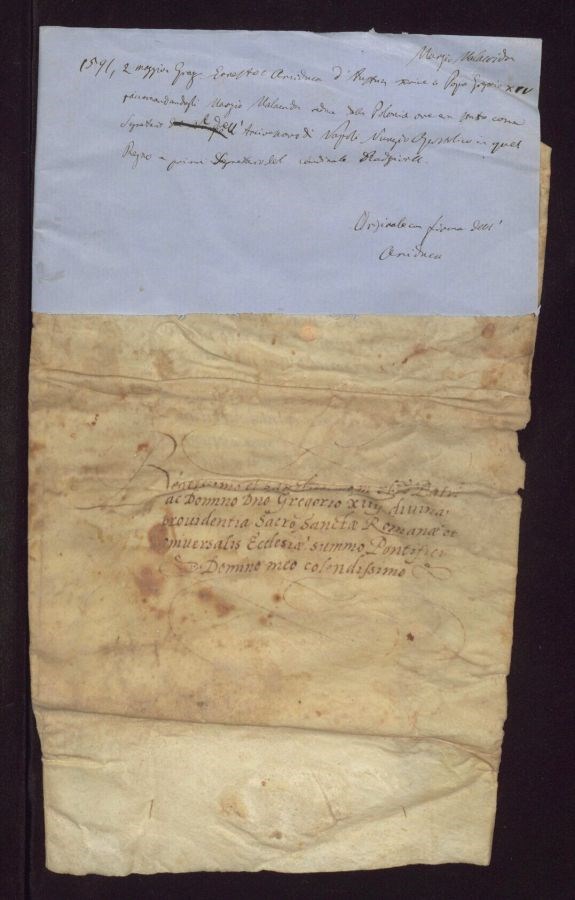 Marzio Malacrida
1591, 2 maggio Graz Ernesto Arciduca d'Austria scrive a Papa Gregorio XIV
raccomandandogli Marzio Malacrida dalla Polonia ove era stato come
Segretario dell' Arcivescovo di Napoli Nunzio Apostolico in quel
Regno e primo Segretario del cardinale Radziwill.
Originale con firma dell'
Arciduca
Beatissimo et Patri
ac Domino Dno Gregorio xiiij divina
providentia Sacro Sanctæ Romanæ et
universalis Ecclesiæ summo Pontifici
Domino meo colendissimo